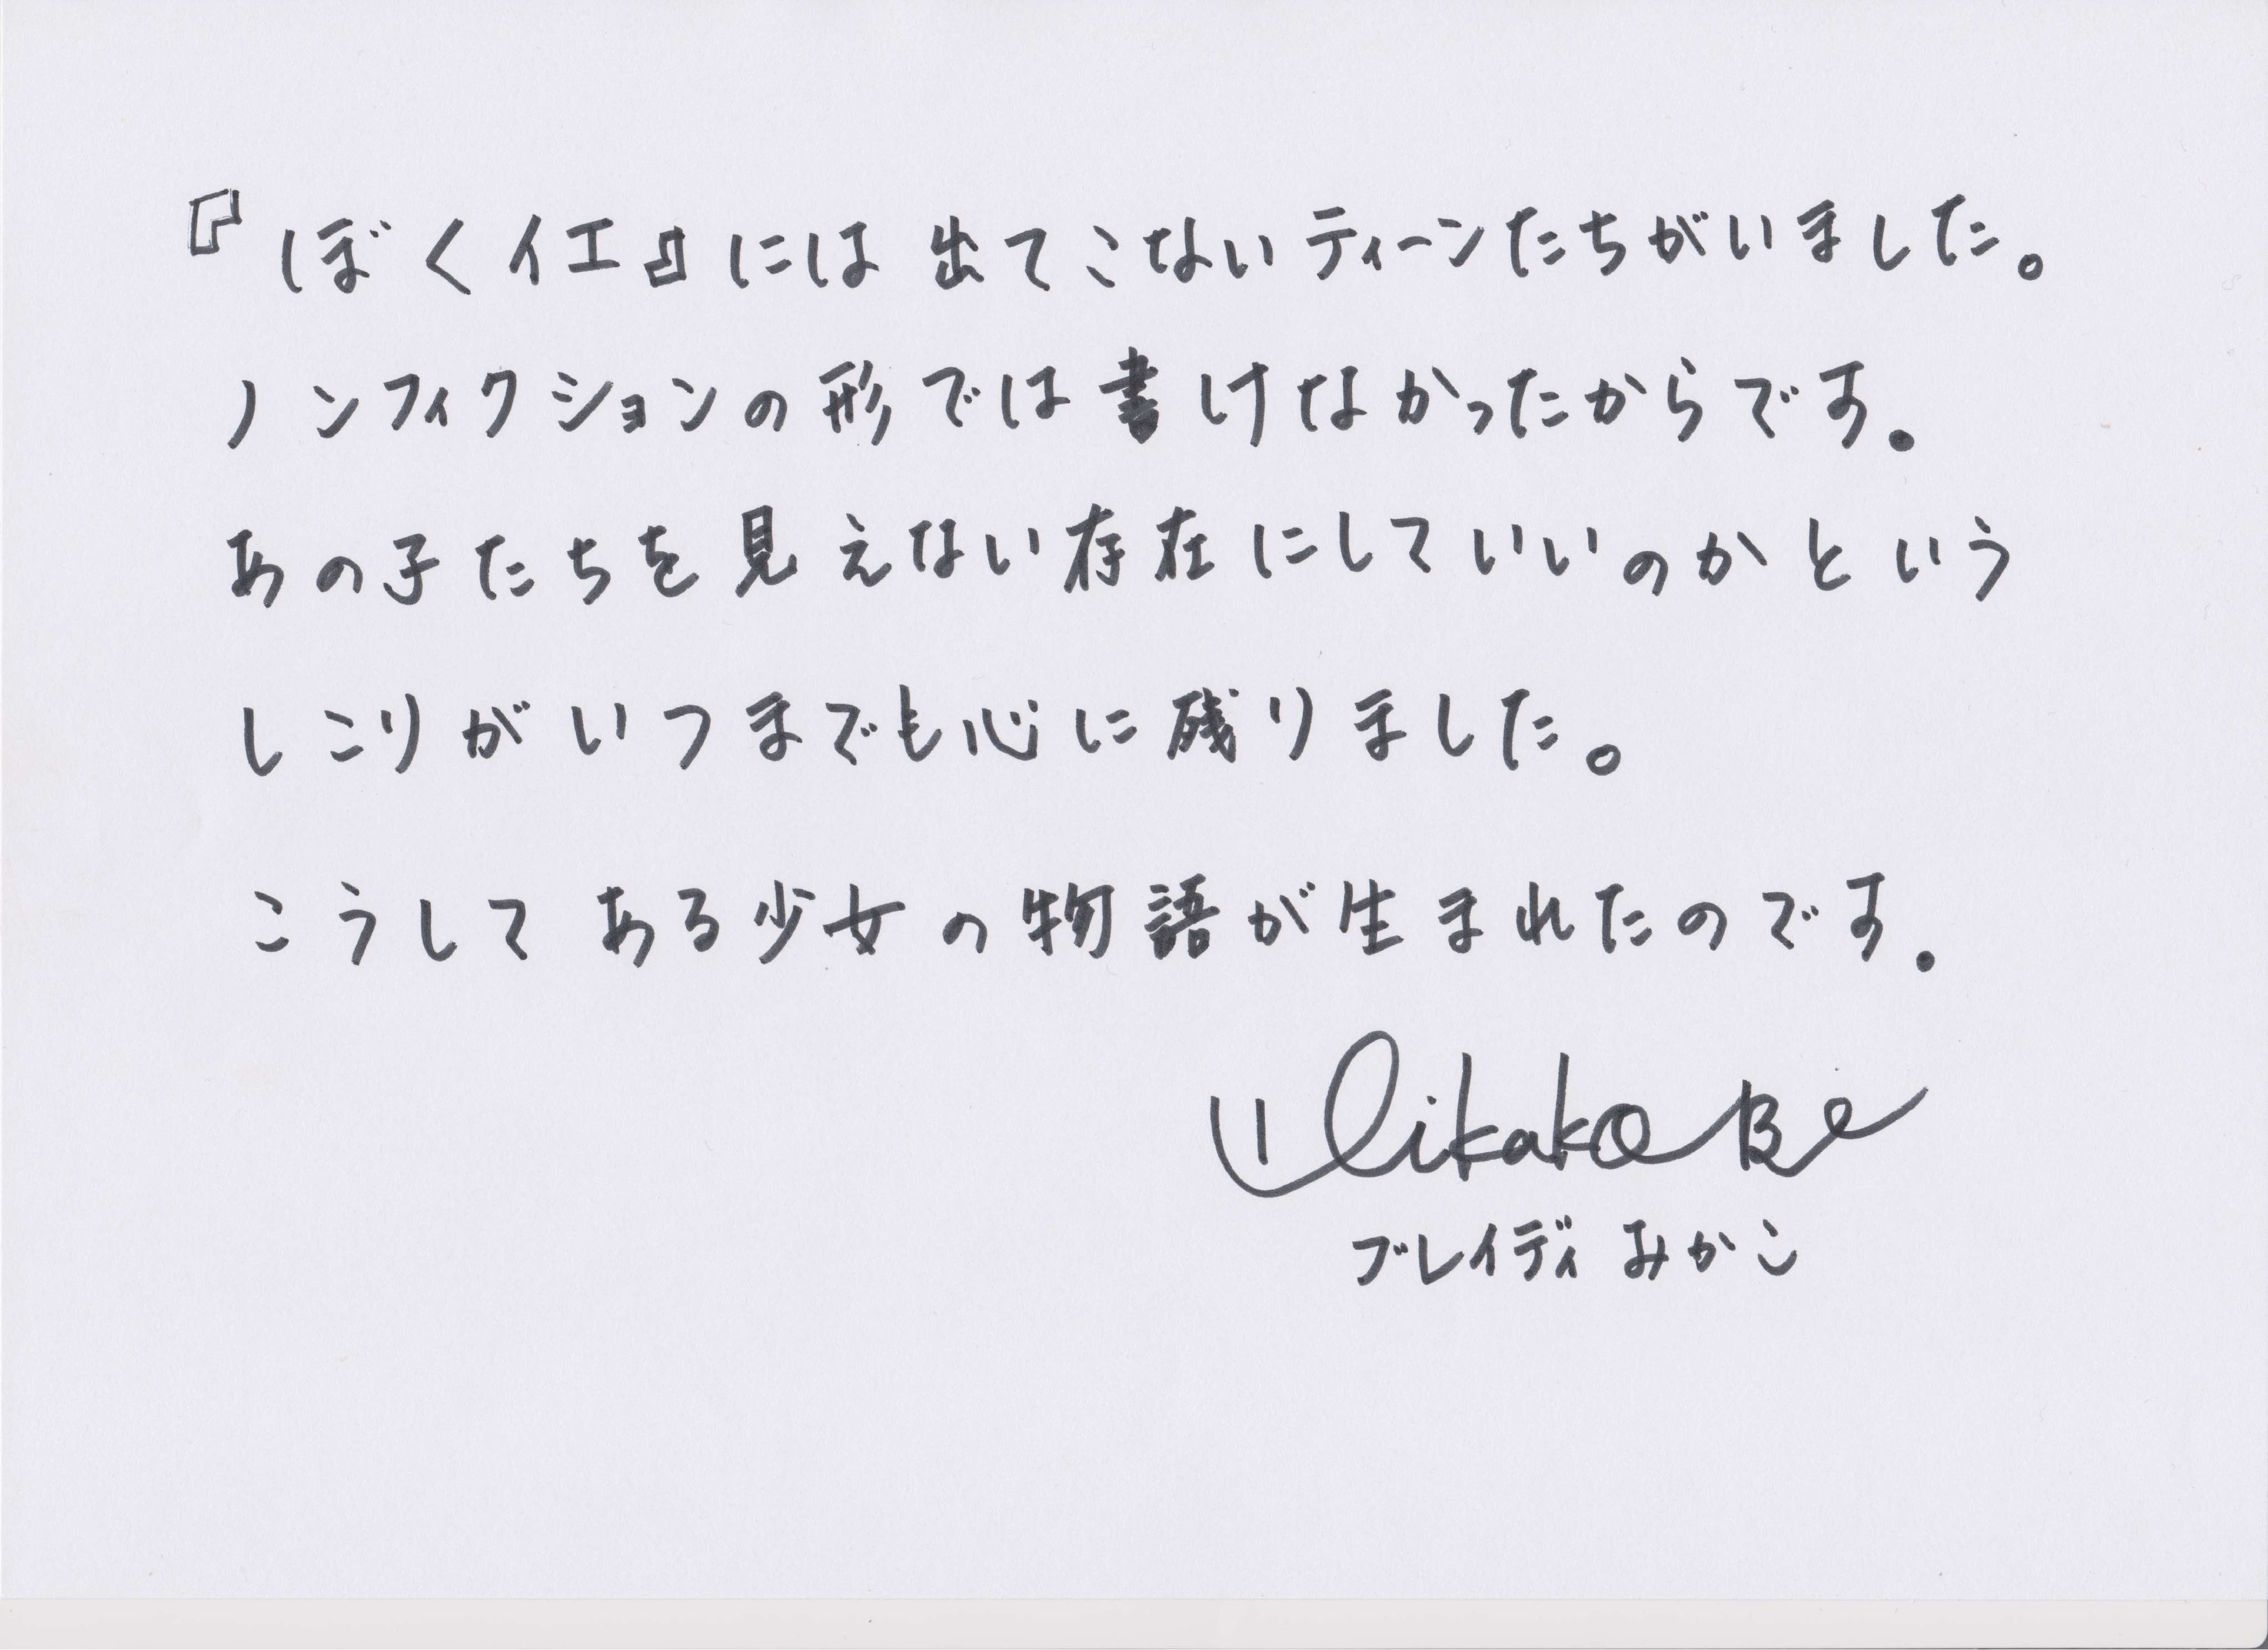 『ぼくイエ』には出てこないティーンたちがいました。
ノンフィクションの形では書けなかったからです。
あの子たちを見えない存在にしていいのかという
しこりがいつまでも心に残りました。
こうしてある少女の物語が生まれたのです。
Mikako Be
ブレイディみかこ